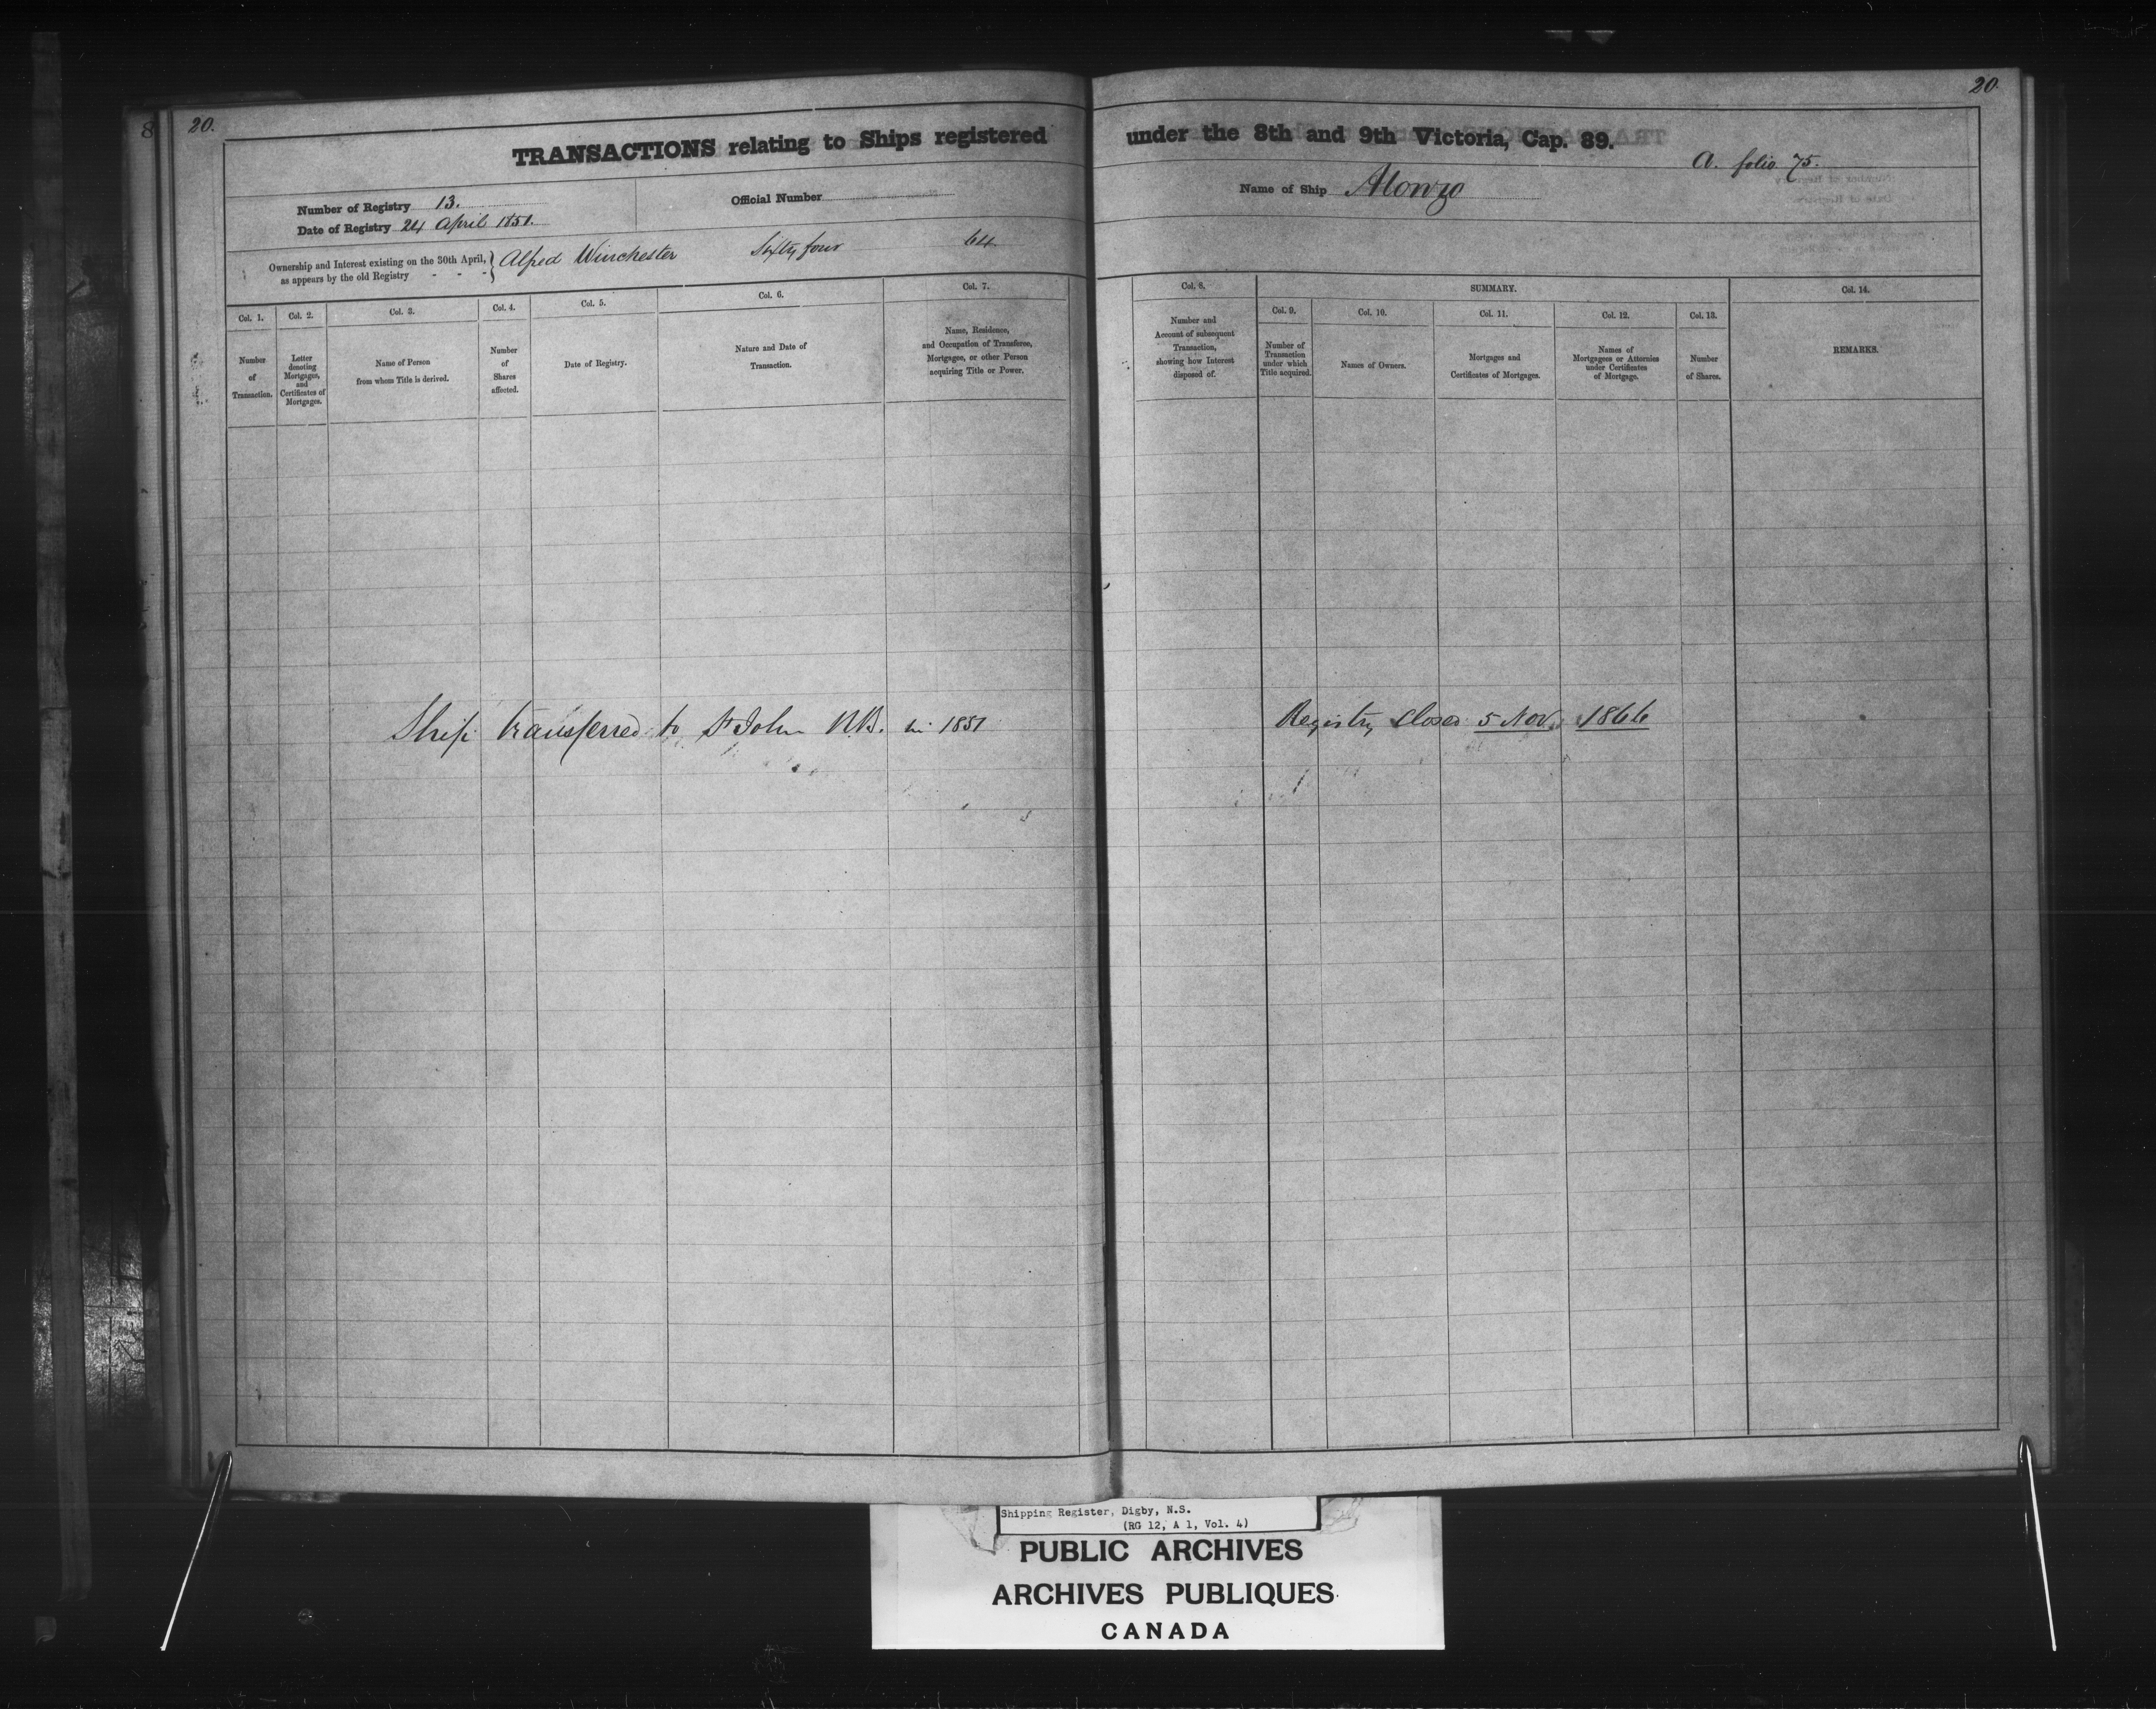 8
20.
20.
TRANSACTIONS relating to Ships registered under the 8th and 9th Victoria, Cap. 89.
A. folio 75.
Number of Registry 13.
Official Number
Name of Ship Alonzo
Date of Registry 24 April 1851.
Ownership and Interest existing on the 30th April, as appears by the old Registry - - -
Alfred Winchester Sixty four 64
Col. 1.
Number of Transaction.
Col. 2.
Letter denoting Mortgages, and Certificates of Mortgages.
Col. 3.
Name of Person from whom Title is derived.
Col. 4.
Number of Shares affected.
Col. 5.
Date of Registry.
Col. 6.
Nature and Date of Transaction.
Col. 7.
Name, Residence, and Occupation of Transferee, Mortgagee, or other Person acquiring Title or Power.
Col. 8.
Number and Account of subsequent Transaction, showing how Interest disposed of.
SUMMARY.
Col. 9.
Number of Transaction under which Title acquired.
Col. 10.
Names of Owners.
Col. 11.
Mortgages and Certificates of Mortgages.
Col. 12.
Names of Mortgagees or Attornies under Certificates of Mortgage.
Col. 13.
Number of Shares.
Col. 14.
REMARKS.
Ship transferred to St John N.B. in 1851
Registry Closed 5 Nov. 1866
Shipping Register, Digby, N.S.
(RG 12, A 1, Vol. 4)
PUBLIC ARCHIVES
ARCHIVES PUBLIQUES
CANADA